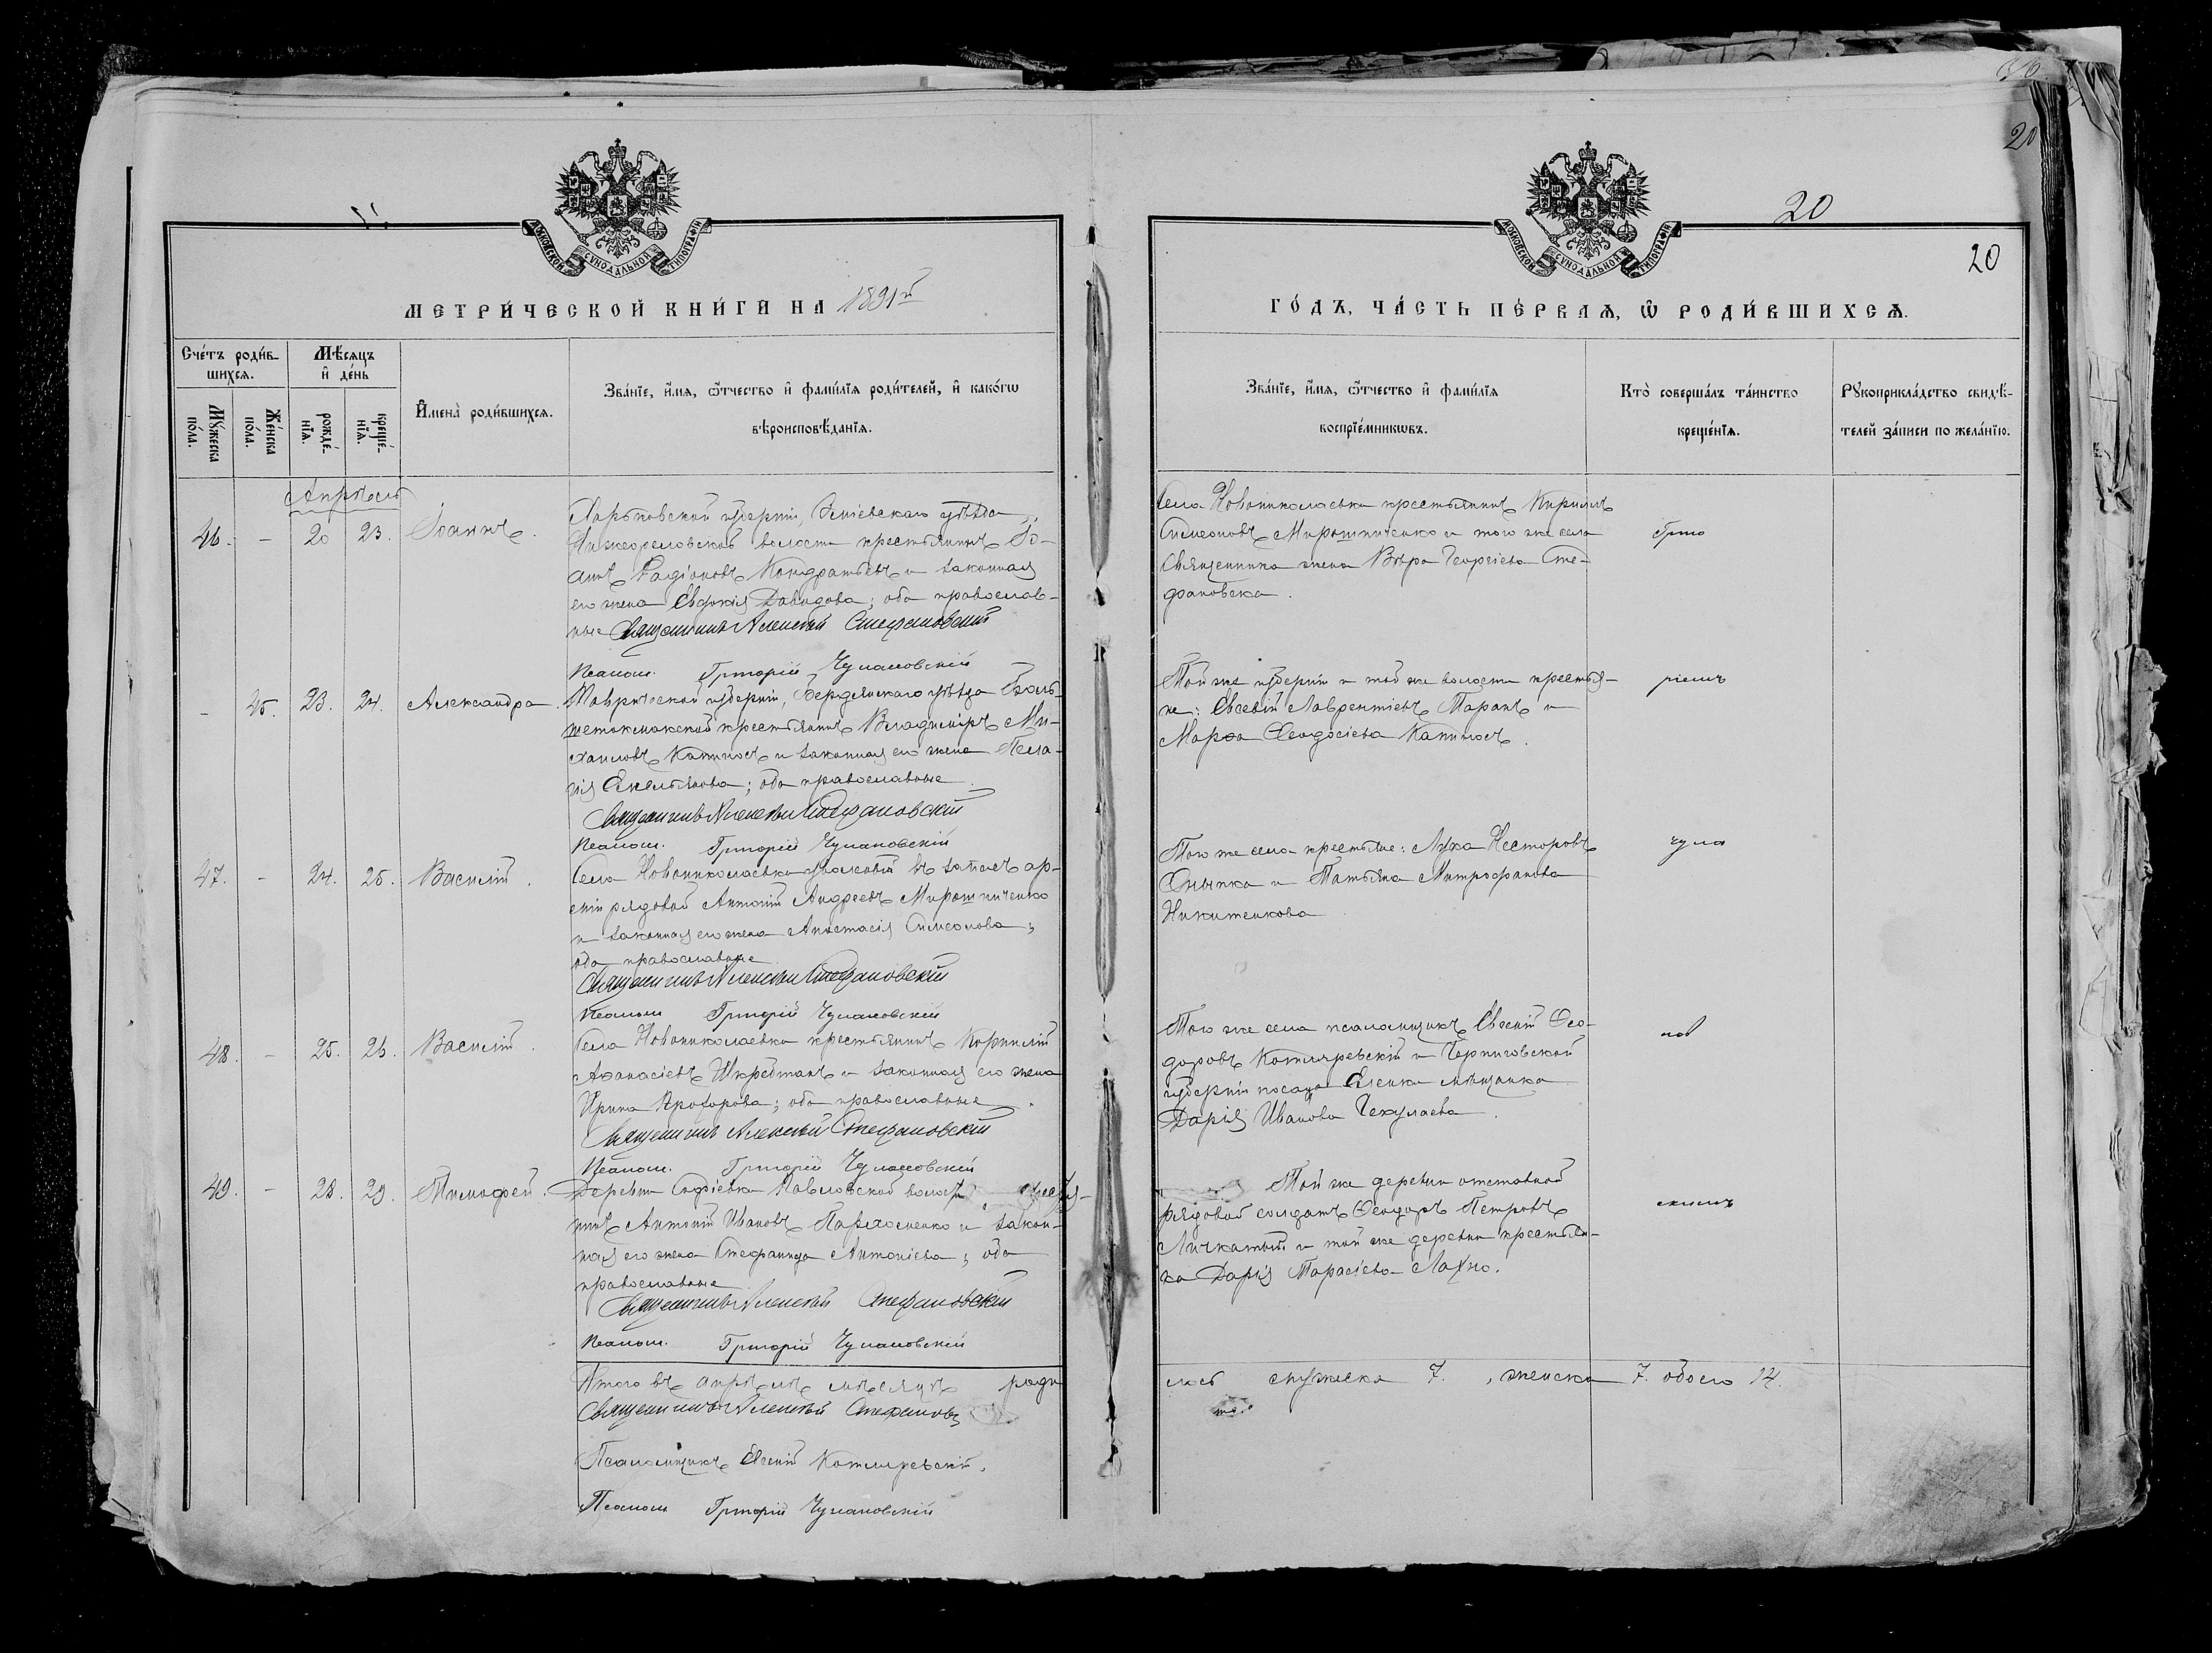 36
20
20
20
МОСКОВСКОЙ СѴНОДАЛЬНОЙ ТИПОГРАФІИ
МОСКОВСКОЙ СѴНОДАЛЬНОЙ ТИПОГРАФІИ
МЕТРИ́ЧЕСКОЙ КНИ́ГИ НА 1891й
ГО́ДЪ, ЧА́СТЬ ПЕ́РВАѦ, Ѽ РОДИ́ВШИХСѦ.
Сче́тъ роди́в-
шихсѧ.
Мѣ́сѧцъ
и҆ де́нь
Мꙋ́жеска
по́ла.
Же́нска
по́ла.
рожде́-
нїѧ.
креще́-
нїѧ.
И҆мена̀ роди́вшихсѧ.
Зва́нїе, и҆́мѧ, ѻ҆́тчество и҆ фами́лїѧ роди́телей, и҆ како́гѡ
вѣроисповѣ́данїѧ.
Зва́нїе, и҆́мѧ, ѻ҆́тчество и҆ фами́лїѧ
воспрїе́мникѡвъ.
Кто̀ соверша́лъ та́инство
креще́нїѧ.
Рꙋкоприкла́дство свидѣ́-
телей за́писи по жела́нїю.
Апрѣль
46. - 20 23. Іоаннъ.
Харьковской губерніи, Зміевскаго уѣзда,
Нижнеорельской волости крестьянинъ Іо-
аннъ Радіоновъ Кондратьевъ и законная
его жена Евдокія Давидова; оба православ-
ные Священникъ Алексѣй Стефановскій
Псалом. Григорій Чулановскій
Села Новониколаевки крестьянинъ Кириллъ
Симеоновъ Мирошниченко и того же села
Священника жена Вѣра Георгіева Сте-
фановска.
- 45. 23. 24. Александра.
Таврической губерніи, Бердянскаго уѣзда Боль-
шетокмакской крестьянинъ Владиміръ Ми-
хаиловъ Капиносъ и законная его жена Пела-
гія Емельянова; оба православные
Священникъ Алексѣй Стефановскій
Псалом. Григорій Чулановскій
Той же губерніи и той же волости крестья-
не: Евсевій Лаврентіевъ Таранъ и
Марѳа Ѳеодосіева Капиносъ.
47. - 24. 25. Василій.
Села Новониколаевки уволенный въ запасъ ар-
міи рядовой Антоній Андреевъ Мирошниченко
и законная его жена Анастасія Симеонова;
оба православные
Священникъ Алексѣй Стефановскій
Псалом Григорій Чулановскій
Того же села крестьяне: Лука Несторовъ
Онышко и Татьяна Митрофанова
Никитенкова
48. - 25. 26. Василій.
Села Новониколаевки крестьянинъ Корнилій
Аѳанасіевъ Шкребтакъ и законная его жена
Ирина Прохорова; оба православные.
Священникъ Алексѣй Стефановскій
Псалом. Григорій Чулановскій
Того же села псаломщикъ Евгеній Ѳео-
доровъ Котляревскій и Черниговской
губерніи посада Еленки мѣщанка
Дарія Иванова Чекулаева.
49. - 28. 29. Тимофей.
Деревни Софіевки Павловской волости крестья-
нинъ Антоній Ивановъ Пархоменко и закон-
ная его жена Стефанида Антоніева; оба
православные
Священникъ Алексѣй Стефановскій
Псалом. Григорій Чулановскій
Той же деревни отставной
рядовой солдатъ Ѳеодоръ Петровъ
Личкатый и той же деревни крестьян-
ка Дарія Тарасіева Лахно.
Итого въ апрѣлѣ мѣсяцѣ роди
лось мужеска 7., женска 7. обоего 14.
Священникъ Алексѣй Стефановъ
Псаломщикъ Евгеній Котляревскій.
Псалом Григорій Чулановскій